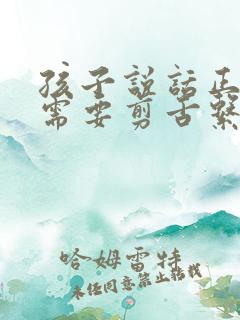 孩子説話正
需要剪舌繫
哈姆雷特
未经同意禁止转载